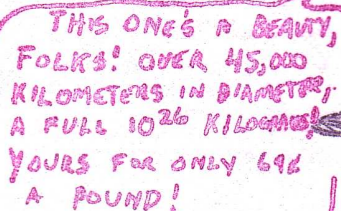 THIS ONE'S A BEAUTY,
FOLKS! OVER 45,000
KILOMETERS IN DIAMETER,
A FULL 10²⁶ KILOGRAMS!
YOURS FOR ONLY 69¢
A POUND!